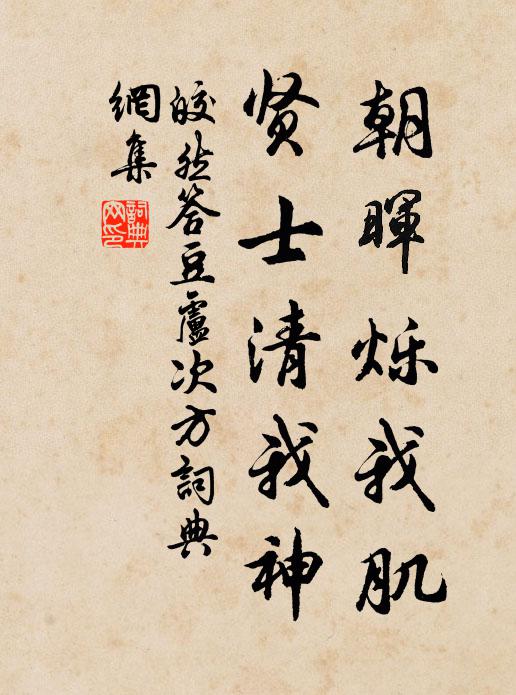 朝暉烁我肌
贤士清我神
皎然答豆盧次方詞典
網集
詞典
网印